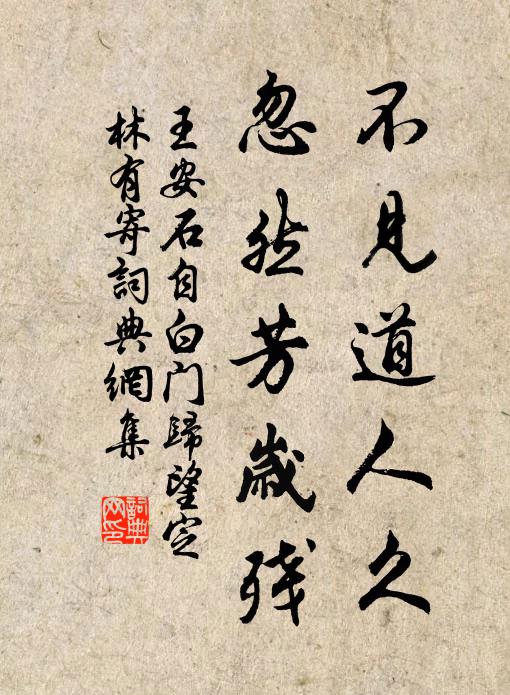 不見道人久
忽然芳歲殘
王安石自白門歸望定
林有寄詞典網集
詞典
网印